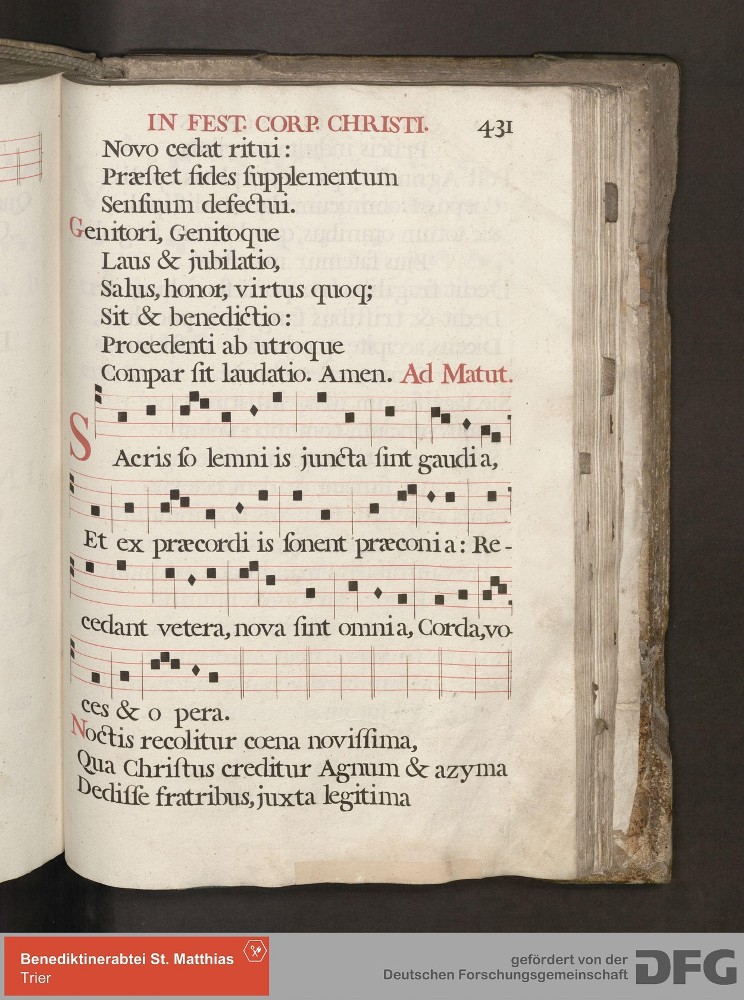 IN FEST. CORP. CHRISTI. 431
Novo cedat ritui:
Præſtet fides ſupplementum
Senſuum defectui.
Genitori, Genitoque
Laus & jubilatio,
Salus, honor, virtus quoq;
Sit & benedictio:
Procedenti ab utroque
Compar ſit laudatio. Amen. Ad Matut.
Sacris ſo lemni is juncta ſint gaudi a,
Et ex præcordi is ſonent præconi a: Re-
cedant vetera, nova ſint omni a, Corda, vo-
ces & o pera.
Noctis recolitur cœna noviſſima,
Qua Chriſtus creditur Agnum & azyma
Dediſſe fratribus, juxta legitima
Benediktinerabtei St. Matthias
Trier
gefördert von der
Deutschen Forschungsgemeinschaft
DFG